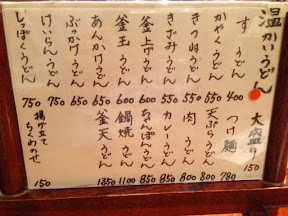 温かいうどん
大盛り 150
すうどん 400
かやくうどん 550
きつねうどん 550
きざみうどん 550
釜上げうどん 600
釜玉うどん 600
あんかけうどん 650
ぶっかけうどん 650
けいらんうどん 750
しっぽくうどん 750
つけ麺 780
天ぷらうどん 800
肉うどん 800
カレーうどん 850
ちゃんぽんうどん 850
鍋焼うどん 1100
釜天うどん 1350
揚げ立てちくわのせ 150